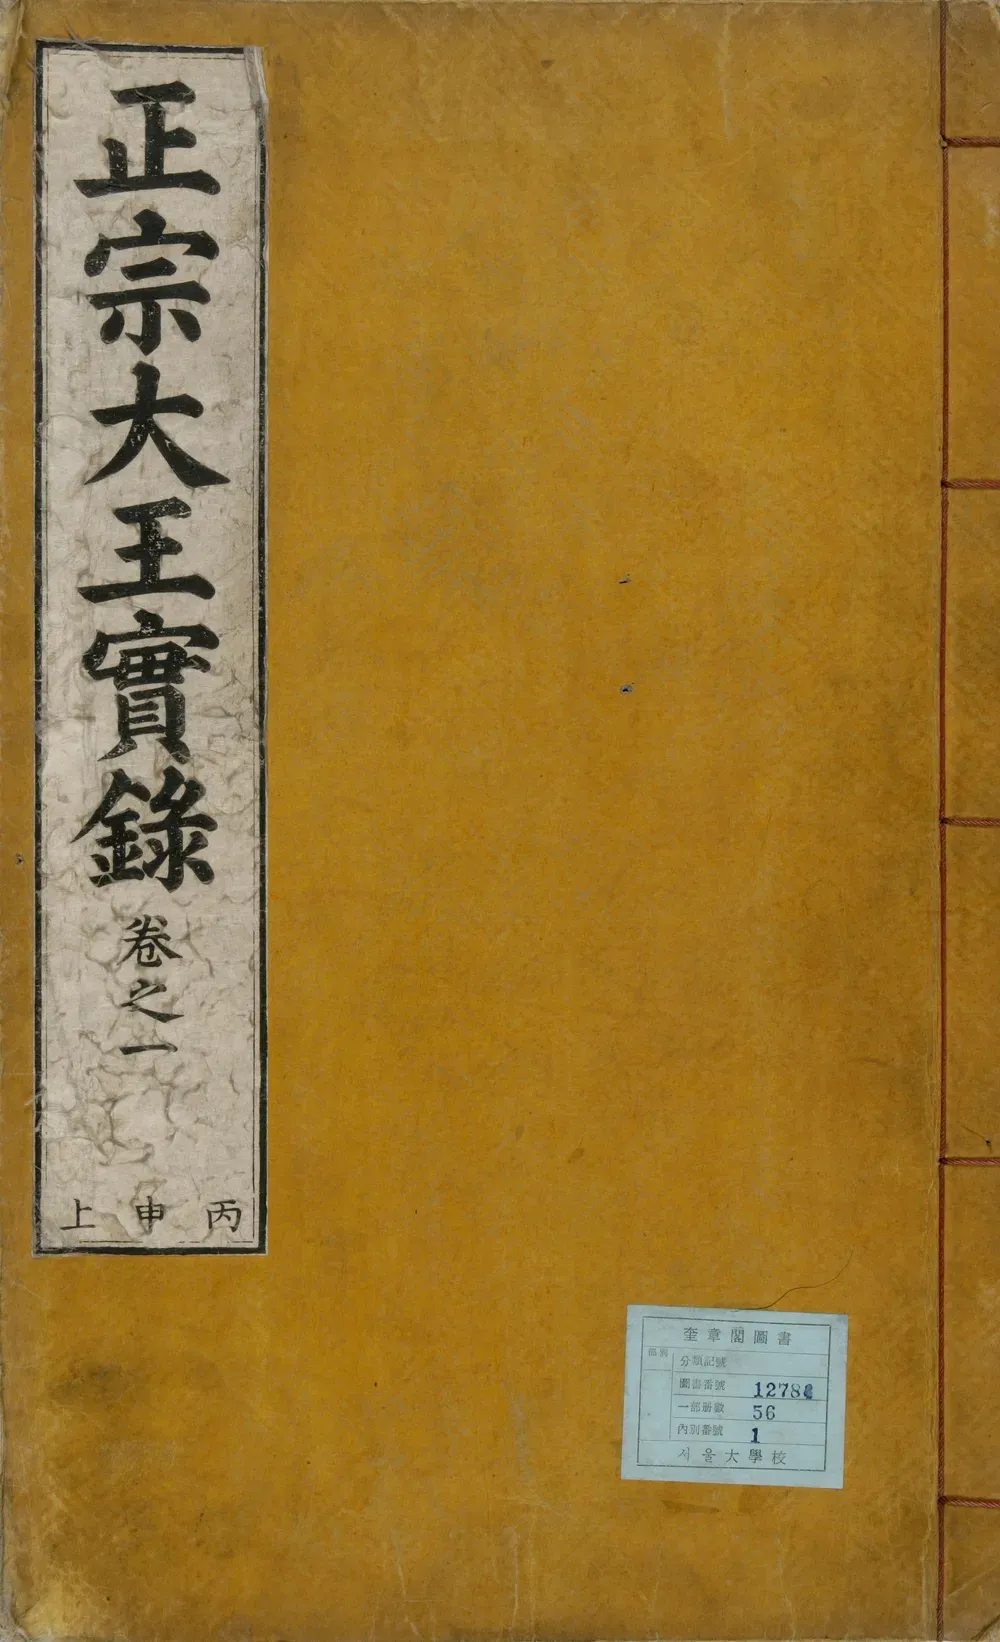 正宗大王實錄 卷之一
丙申上
奎章閣圖書
部別
分類記號
圖書番號 1278
一部册數 56
內別番號 1
서울大學校